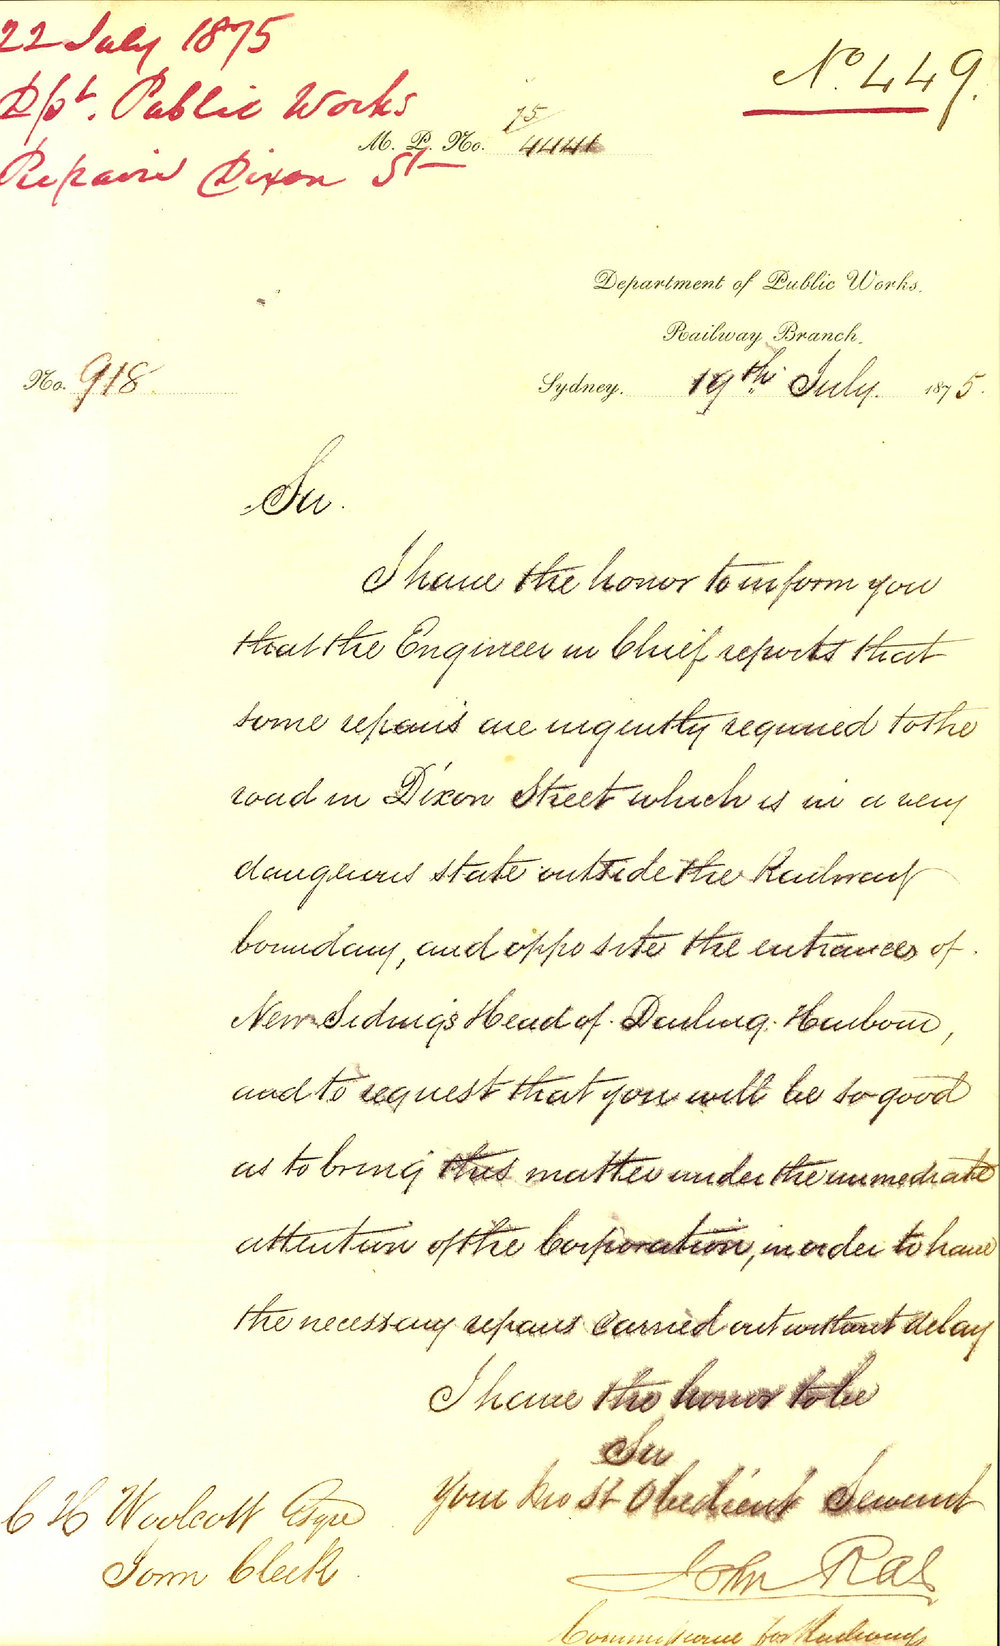 22 July 1875
Dpt. Public Works
Repairs Dixon St
No. 449.
M. P. No. 75/4441
Department of Public Works.
Railway Branch.
No. 918.
Sydney. 19th July. 1875.
Sir.
I have the honor to inform you
that the Engineer in Chief reports that
some repairs are urgently required to the
road in Dixon Street which is in a very
dangerous state outside the Railway
boundary, and opposite the entrances of
New Sidings Head of Darling Harbour,
and to request that you will be so good
as to bring this matter under the immediate
attention of the Corporation, in order to have
the necessary repairs carried out without delay
I have the honor to be
Sir
Your Most Obedient Servant
John Rae
Commissioner for Railways
C H Woolcott Esqre
Town Clerk.